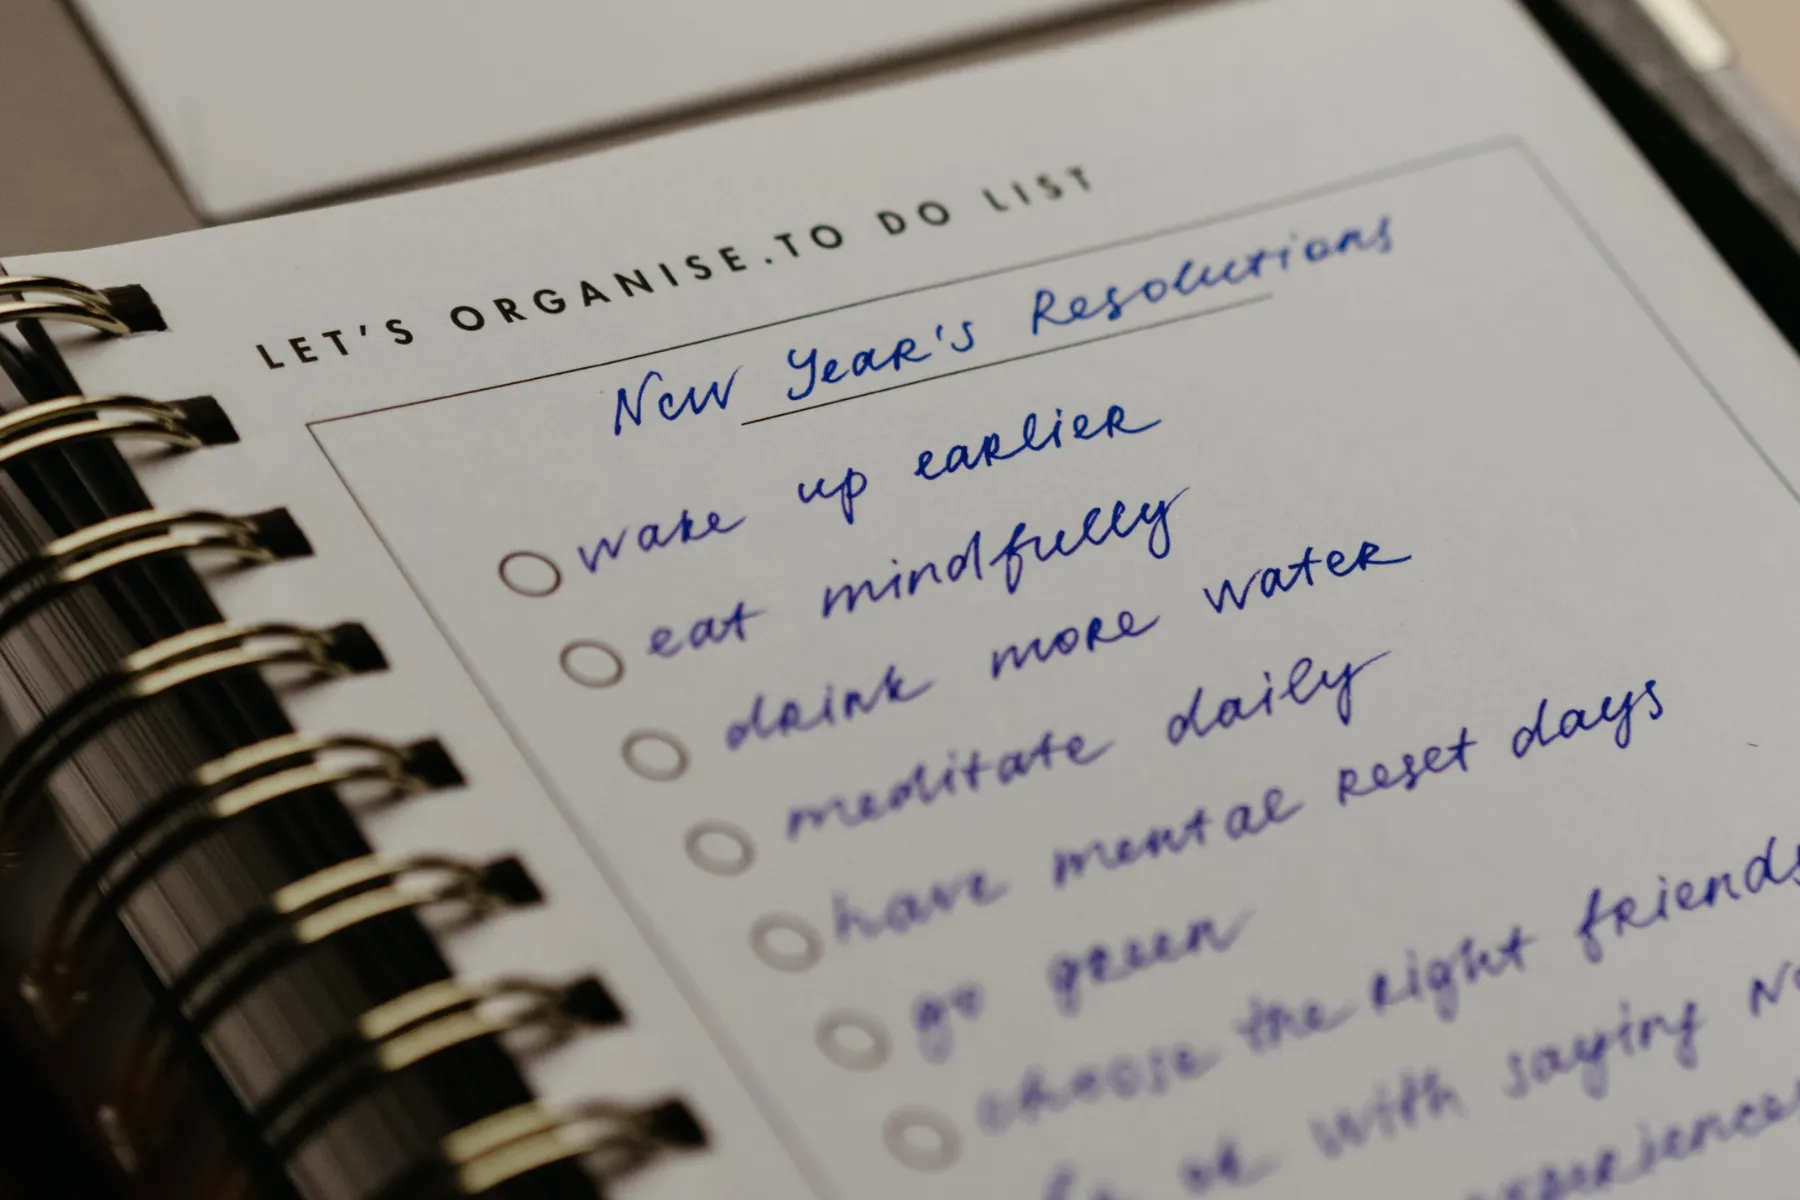 LET'S ORGANISE.TO DO LIST
New Year's Resolutions
wake up earlier
eat mindfully
drink more water
meditate daily
have mental reset days
go green
choose the right friends
be ok with saying No
experiences